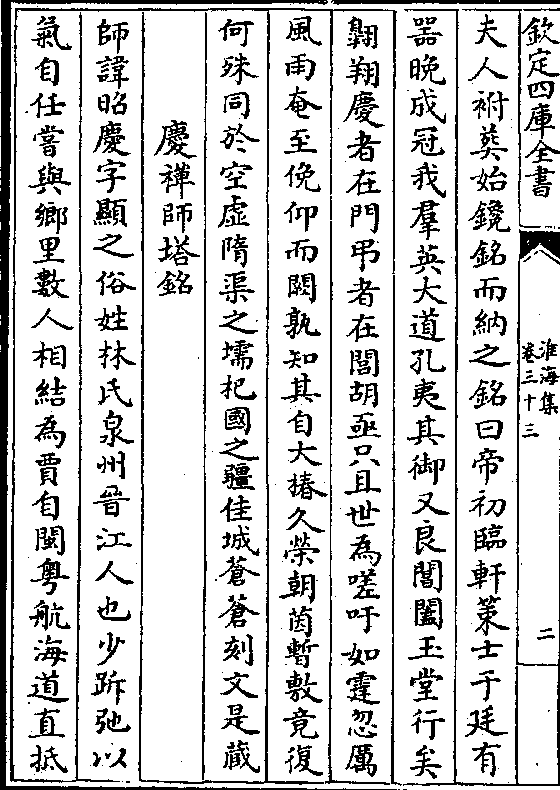 欽定四庫全書
淮海集
卷三十三
二
夫人祔葬始鑱銘而納之銘曰帝初臨軒策士于廷有
器晚成冠我羣英大道孔夷其御又良閶闔玉堂行矣
翺翔慶者在門弔者在閭胡亟只且世為嗟吁如霆忽厲
風雨奄至俛仰而闋孰知其自大椿久榮朝菌暫敷竟復
何殊同於空虛隋渠之壖杞國之疆佳城蒼蒼刻文是藏
慶禪師塔銘
師諱昭慶字顯之俗姓林氏泉州晉江人也少跅弛以
氣自任嘗與鄉里數人相結為賈自閩粵航海道直抵